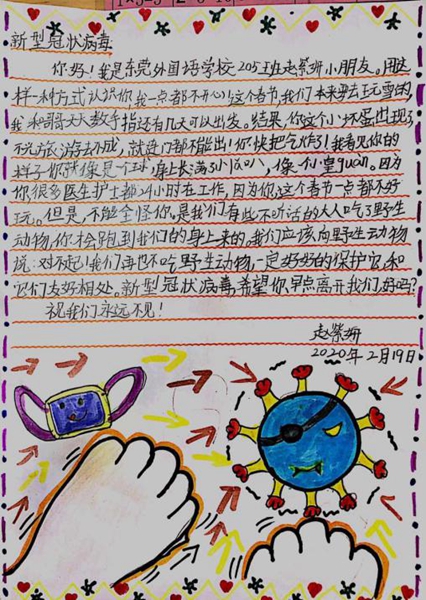 新型冠状病毒
你好!我是东莞外国语学校205班赵紫珊小朋友。用这
样一种方式认识你我一点都不开心!这个春节,我们本来要去玩雪的,
我和哥哥天天数手指还有几天可以出发。结果你这个小坏蛋出现了
不说旅游去不成,就连门都不能出!你快把气炸了!我看见你的
样子你就像是个球,身上长满了小,像个小皇guān。因为
你很多医生护士都24小时在工作,因为你,这个春节一点都不好
玩。但是,不能全怪你,是我们有些不听话的人人吃了野生
动物,你才会跑到我们的身上来的。我们应该向野生动物
说:对不起!我们再也不吃野生动物,一定好好的保护它,和
它们友好相处。新型冠状病毒,希望你早点离开我们,好吗?
祝我们永远不见!
赵紫珊
2020年2月19日